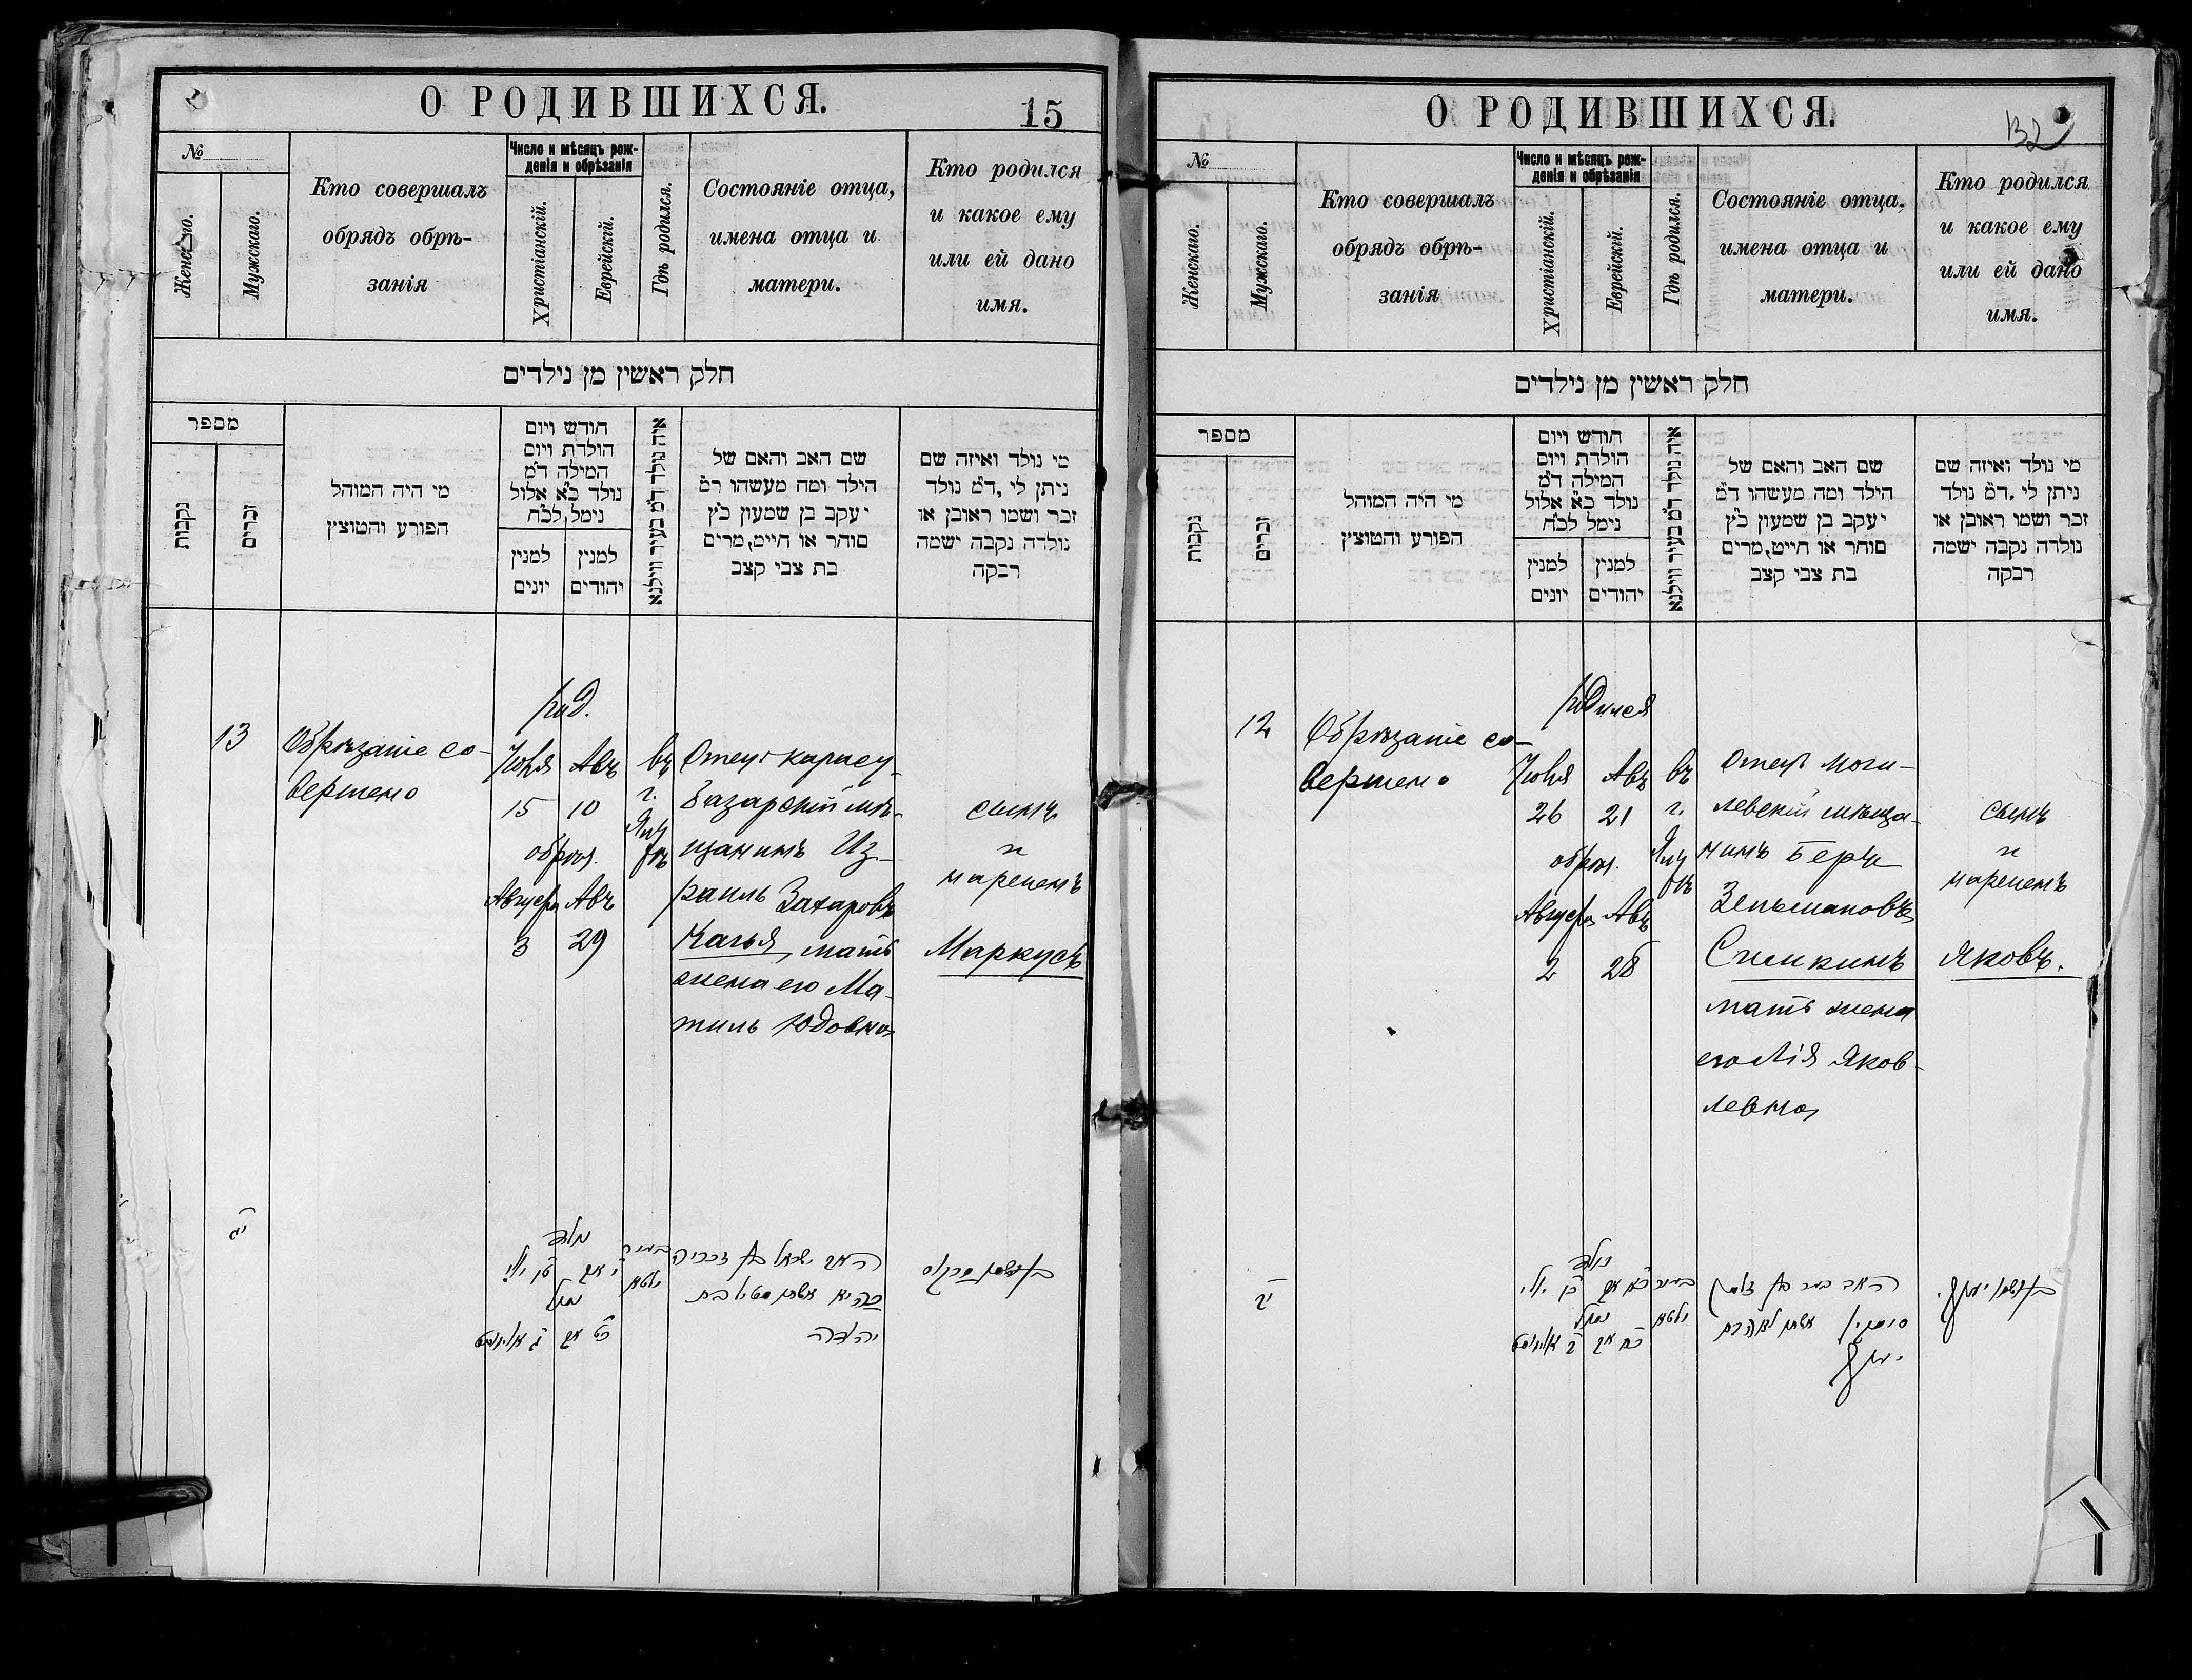 О РОДИВШИХСЯ.
15
№
Женскаго.
Мужскаго.
Кто совершалъ
обрядъ обрѣ-
занія
Число и мѣсяцъ рож-
денія и обрѣзанія
Христіанскій.
Еврейскій.
Гдѣ родился.
Состояніе отца,
имена отца и
матери.
Кто родился
и какое ему
или ей дано
имя.
חלק ראשין מן נילדים
מספר
נקבות
זכרים
מי היה המוהל
הפורע והמוצץ
חודש ויום
הולדת ויום
המילה ד״מ
נולד כ״א אלול
נימל לכ״ח
למנין
יונים
למנין
יהודים
איה נולד ד״מ בעיר ווילנא
שם האב והאם של
הילד ומה מעשהו ד״מ
יעקב בן שמעון כ״ץ
סוחר או חייט, מרים
בת צבי קצב
מי נולד ואיזה שם
ניתן לי, ד״מ נולד
זכר ושמו ראובן או
נולדה נקבה ישמה
רבקה
13
Обрѣзаніе со-
вершено
род.
Іюля Авъ
15 10
обрѣз.
Августа Авъ
3 29
въ
г.
Отецъ карасу-
базарскій мѣ-
щанинъ Из-
раиль Захаровъ
Качья, мать
жена его Ма-
тиль Юдовна
сынъ
и
нареченъ
Маркусъ
י״ג
האב ישראל בן זכריה
יהודה
О РОДИВШИХСЯ.
132
№
Женскаго.
Мужскаго.
Кто совершалъ
обрядъ обрѣ-
занія
Число и мѣсяцъ рож-
денія и обрѣзанія
Христіанскій.
Еврейскій.
Гдѣ родился.
Состояніе отца,
имена отца и
матери.
Кто родился
и какое ему
или ей дано
имя.
חלק ראשין מן נילדים
מספר
נקבות
זכרים
מי היה המוהל
הפורע והמוצץ
חודש ויום
הולדת ויום
המילה ד״מ
נולד כ״א אלול
נימל לכ״ח
למנין
יונים
למנין
יהודים
איה נולד ד״מ בעיר ווילנא
שם האב והאם של
הילד ומה מעשהו ד״מ
יעקב בן שמעון כ״ץ
סוחר או חייט, מרים
בת צבי קצב
מי נולד ואיזה שם
ניתן לי, ד״מ נולד
זכר ושמו ראובן או
נולדה נקבה ישמה
רבקה
12
Обрѣзаніе со-
вершено
родился
Іюля Авъ
26 21
обрѣз.
Августа Авъ
2 28
въ
г.
Отецъ моги-
левскій мѣща-
нинъ Берка
Зельмановъ
Симкинъ
мать жена
его Лія Яков-
левна
сынъ
и
нареченъ
Яковъ.
י״ב
נולד
האב בער בן זלמן
יעקב